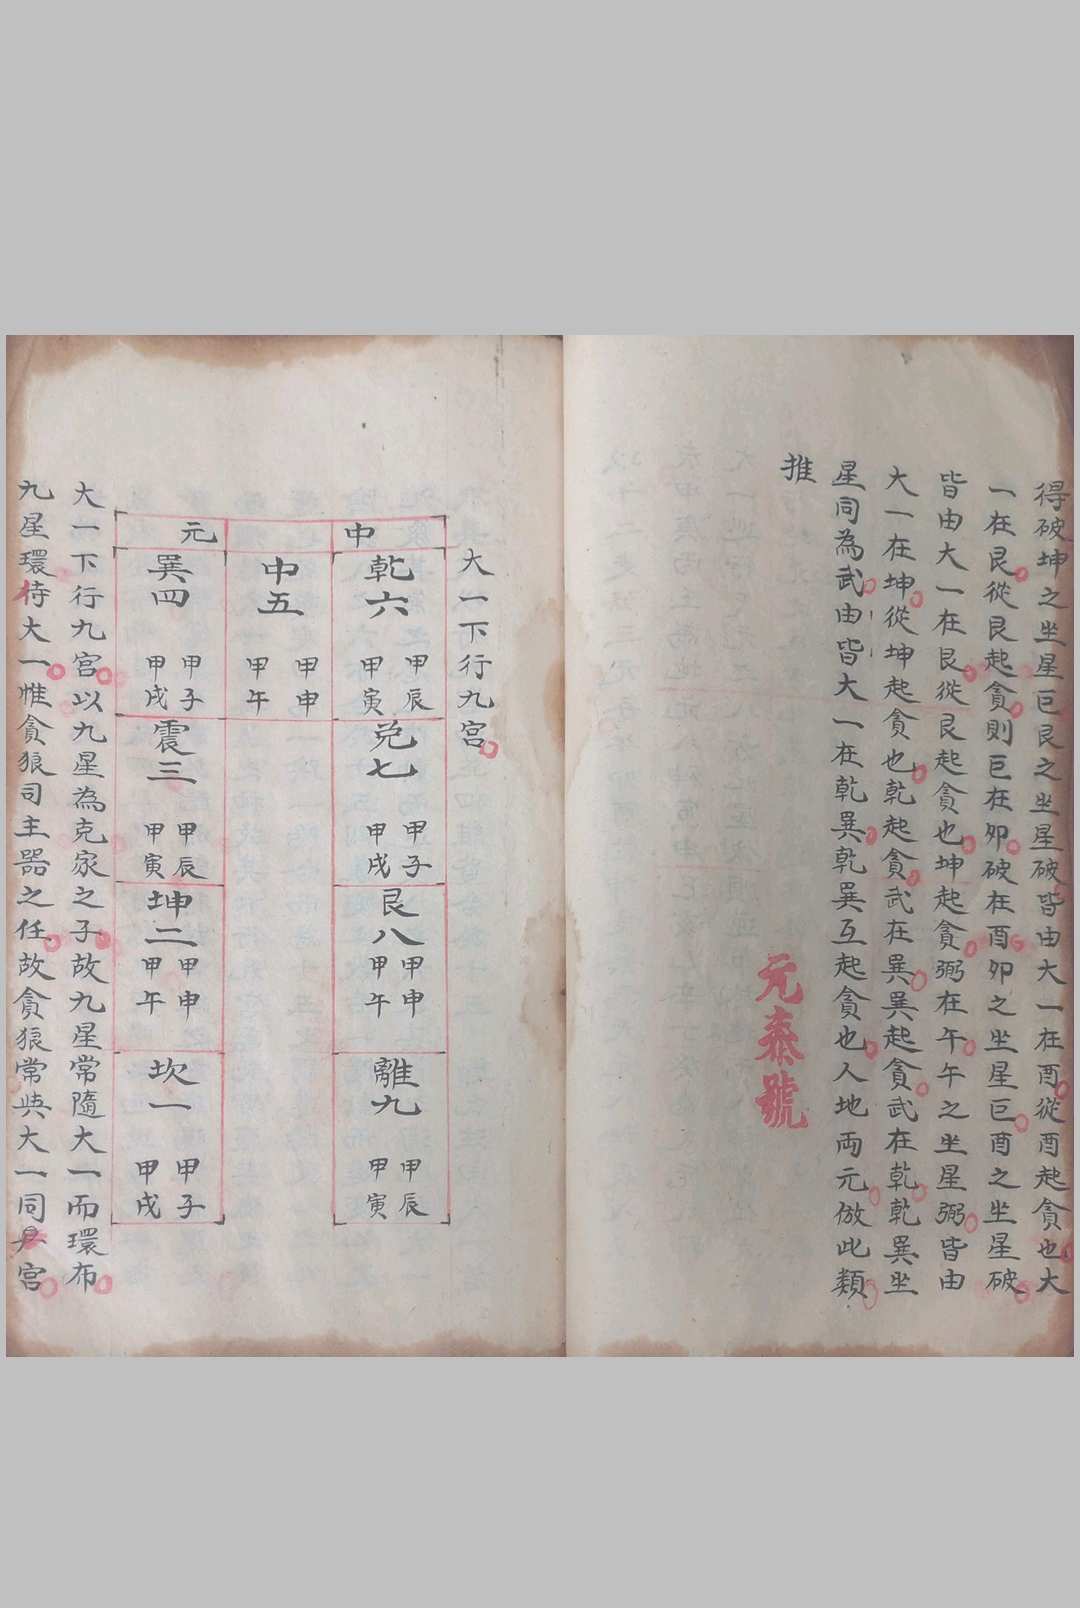 得破坤之坐星巨艮之坐星破皆由大一在酉從酉起貪也大
一在艮從艮起貪則巨在夘破在酉夘之坐星巨酉之坐星破
皆由大一在艮從艮起貪也坤起貪弼在午午之坐星弼皆由
大一在坤從坤起貪也乾起貪武在巽巽起貪武在乾乾巽坐
星同為武由皆大一在乾巽乾巽互起貪也人地両元倣此類
推
元泰號
大一下行九宮
中
元
乾六
甲辰
甲寅
兌七
甲子
甲戌
艮八
甲申
甲午
離九
甲辰
甲寅
中五
甲申
甲午
巽四
甲子
甲戌
震三
甲辰
甲寅
坤二
甲申
甲午
坎一
甲子
甲戌
大一下行九宮以九星為克家之子故九星常隨大一而環布
九星環侍大一惟貪狼司主器之任故貪狼常與大一同尹宮